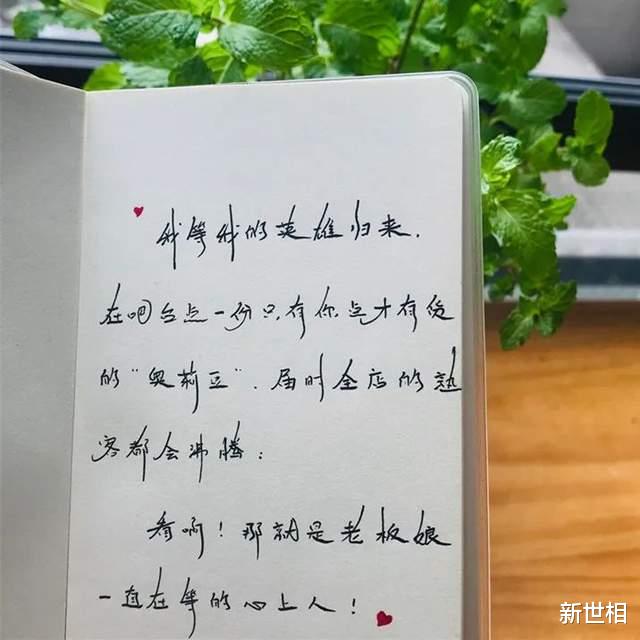 我等我的英雄归来.
在吧台点一份只有你点才有货
的“奥莉豆”.届时全店的熟
客都会沸腾:
看啊!那就是老板娘
一直在等的心上人!
新世相